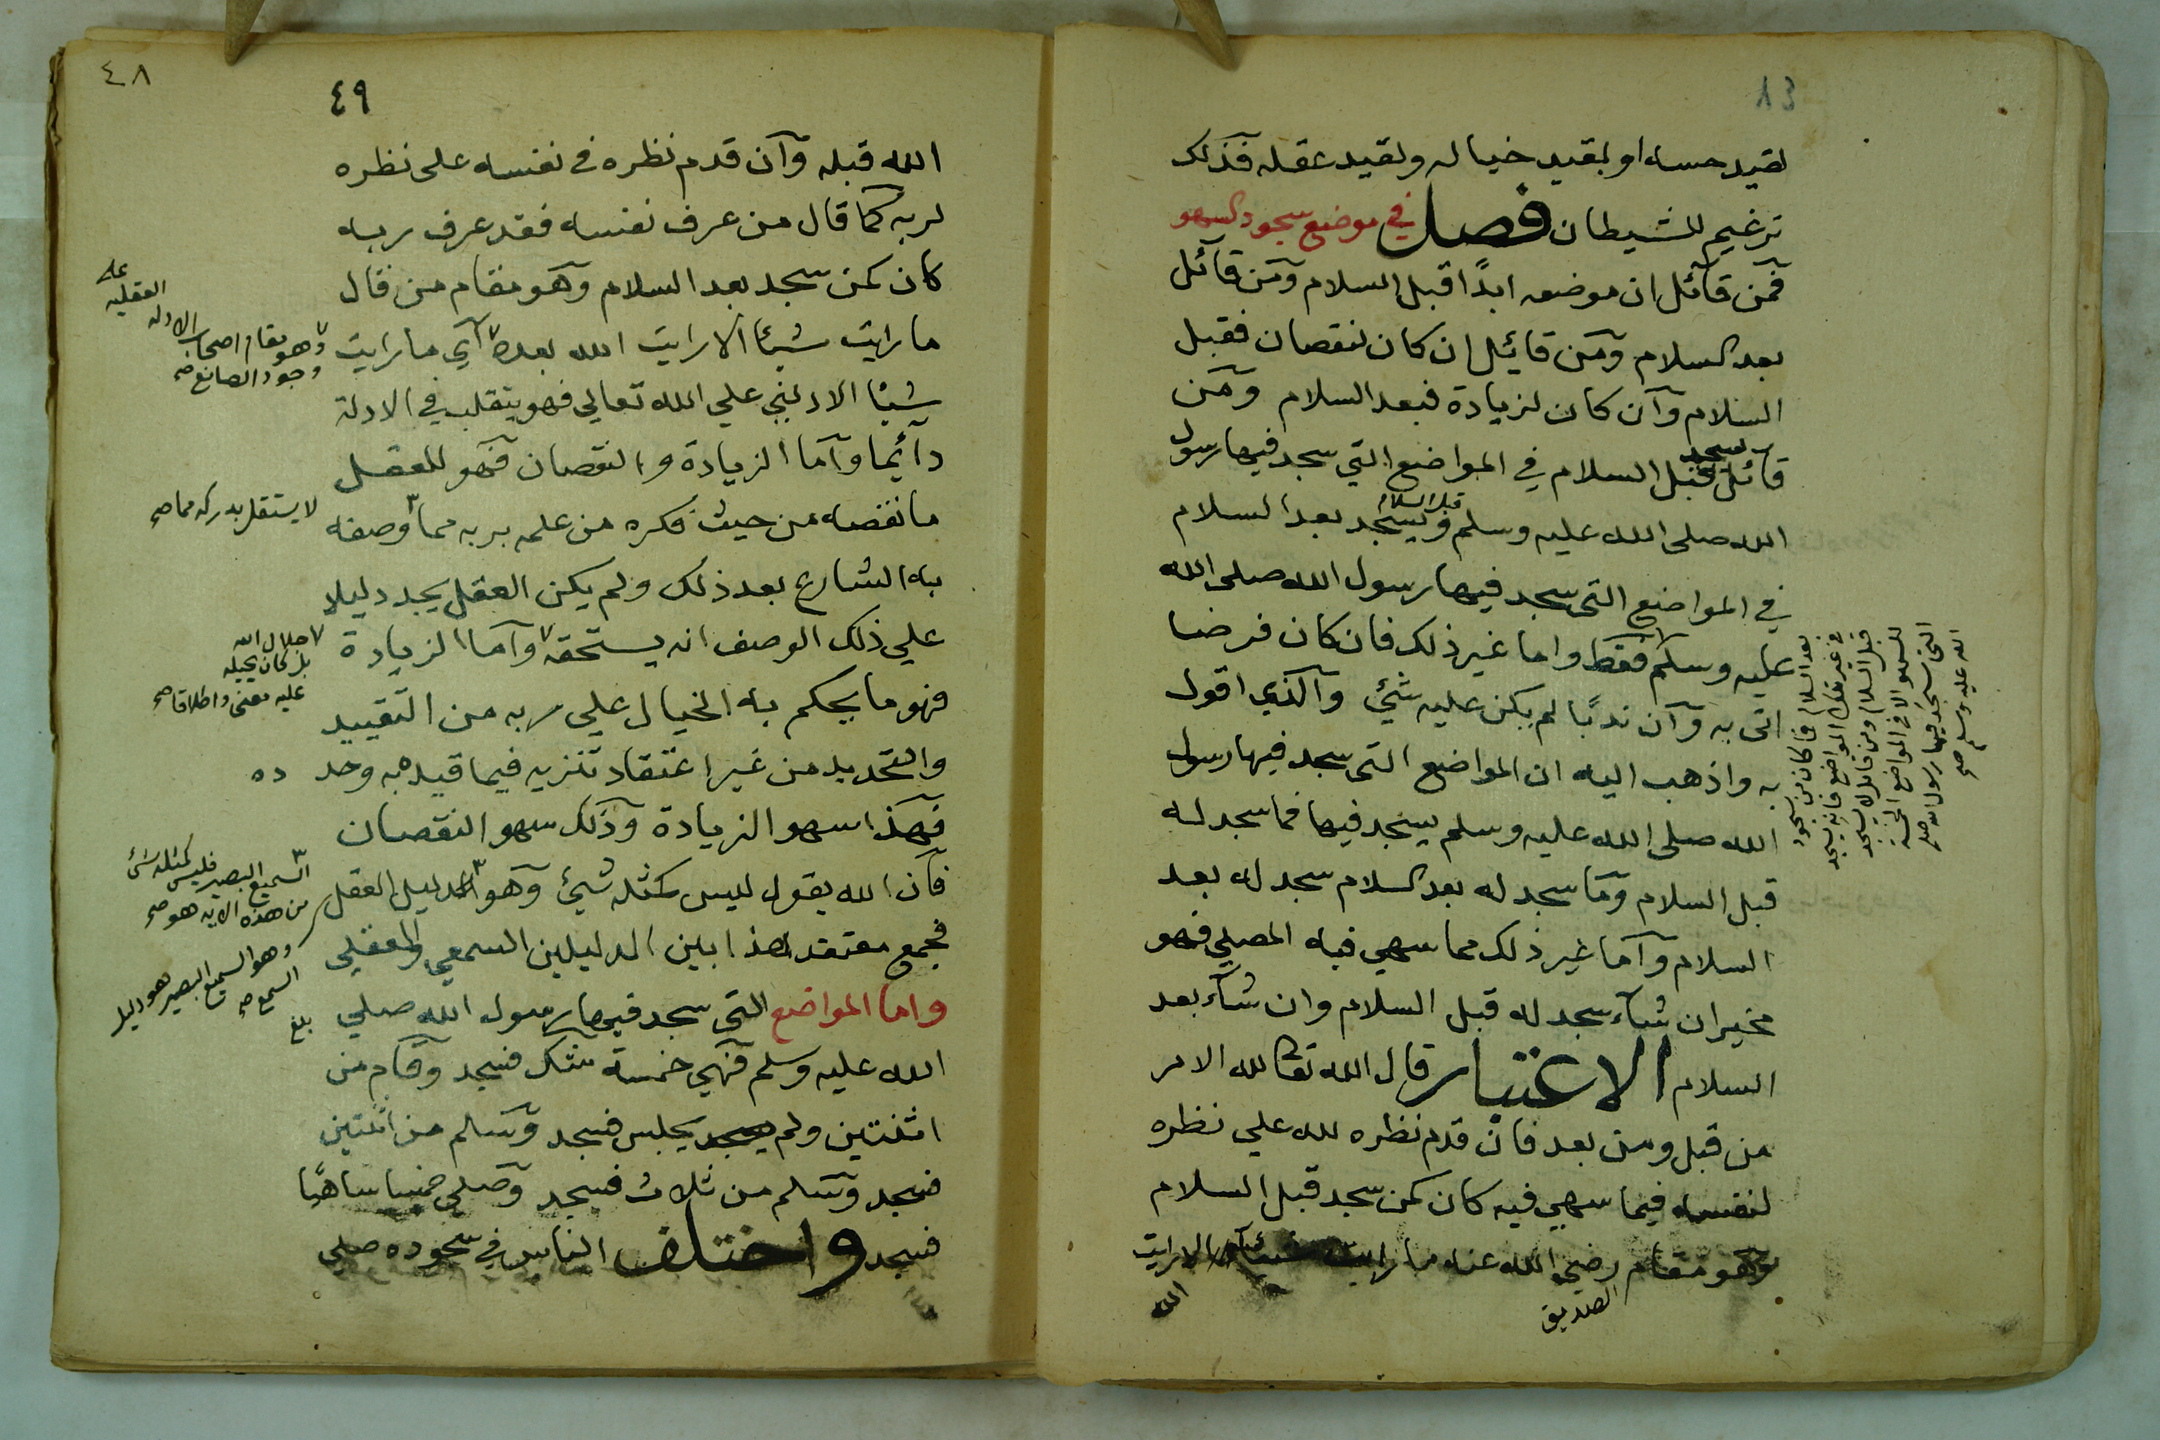 لقيد حسه او بقيد خياله ولقيد عقله فذلك
ترغيم للشيطان فصل في موضع سجود السهو
فمن قائل ان موضعه ابدًا قبل السلام ومن قائل
بعد السلام ومن قايل ان كان لنقصان فقبل
السلام وان كان لزيادة فبعد السلام ومن
قائل يسجد قبل السلام في المواضع التي سجد فيها رسول
الله صلى الله عليه وسلم قبل السلام ويسجد بعد السلام
في المواضع التي سجد فيها رسول الله صلى الله
عليه وسلم فقط واما غير ذلك فان كان فرضا
اتى به وان ندبًا لم يكن عليه شئ والذي اقول
به واذهب اليه ان المواضع التي سجد فيها رسول
الله صلى الله عليه وسلم يسجد فيها فما سجد له
قبل السلام وما سجد له بعد السلام سجد له بعد
السلام واما غير ذلك مما سهي فيه المصلي فهو
مخير ان شاء سجد له قبل السلام وان شاء بعد
السلام الاعتبار قال الله تعالى لله الامر
من قبل ومن بعد فان قدم نظره لله علي نظره
لنفسه فيما سهي فيه كان كمن سجد قبل السلام
وهو مقام الصديق رضي الله عنه ما رايت شيئا الا رايت
الله
بعد السلام فما كان من سجود
في غير تلك المواضع فانه يسجد
قبل السلام ومن قائل لا يسجد
للسهو الا في المواضع الخمسة
التي سجد فيها رسول الله صلى
الله عليه وسلم صح
٤٨
٤٩
الله قبله وان قدم نظره في نفسه على نظره
لربه كما قال من عرف نفسه فقد عرف ربه
كان كمن سجد بعد السلام وهو مقام من قال
ما رايت شيئا الا رايت الله بعده اي ما رايت
شيئا الا دلني علي الله تعالي فهو يتقلب في الادلة
دائما واما الزيادة والنقصان فهو للعقل
ما نقصه من حيث فكره من علمه بربه مما وصفه
به الشارع بعد ذلك ولم يكن العقل يجد دليلا
علي ذلك الوصف انه يستحقه واما الزيادة
فهو ما يحكم به الخيال علي ربه من التقييد
والتحديد من غير اعتقاد تنزيه فيما قيده به وحد ده
فهذا سهو الزيادة وذلك سهو النقصان
فان الله يقول ليس كمثله شئ وهو الدليل العقل
فجمع معتقد هذا بين الدليلين السمعي والعقلي
واما المواضع التي سجد فيها رسول الله صلي
الله عليه وسلم فهي خمسة شك فسجد وقام من
اثنتين ولم يجلس فسجد وسلم من اثنتين
فسجد وسلم من ثلاث فسجد وصلي خمسا ساهيًا
فسجد واختلف الناس في سجوده صلي
وهو مقام اصحاب الادلة العقلية على
وجود الصانع صح
لا يستقل بدركه مما صح
جلال الله
بل كان يحيله
عليه معنى واطلاقا صح
السميع البصير فليس كمثله شئ
من هذه الاية هو صح
وهو السميع البصير هو دليل
السمع صح
بلغ